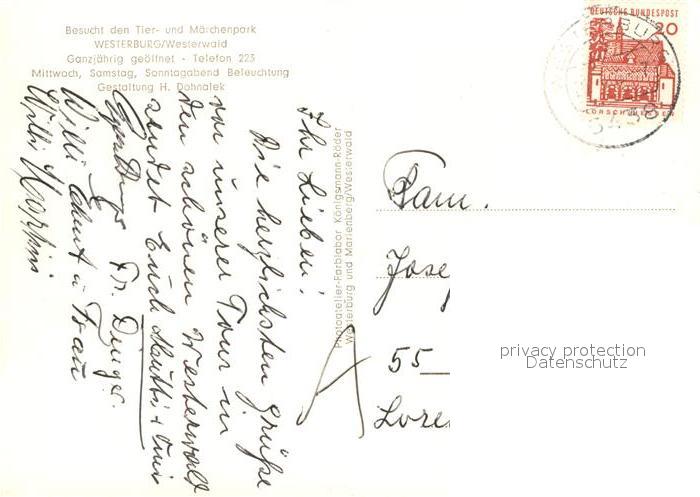 Besucht den Tier- und Märchenpark
WESTERBURG/Westerwald
Ganzjährig geöffnet - Telefon 223
Mittwoch, Samstag, Sonntagabend Beleuchtung
Gestaltung H. Dohnalek
Ihr Lieben!
Die herzlichsten Grüße
von unserer Tour in
den schönen Westerwald
sendet Euch Mutti + Omi
Fr. Dinges.
Willi u Frau
Willi
Photoatelier-Farblabor Königsmann-Röder
Westerburg und Marienberg/Westerwald
DEUTSCHE BUNDESPOST
20
LORSCH/HESSEN
Fam.
Jose
55
privacy protection
Datenschutz